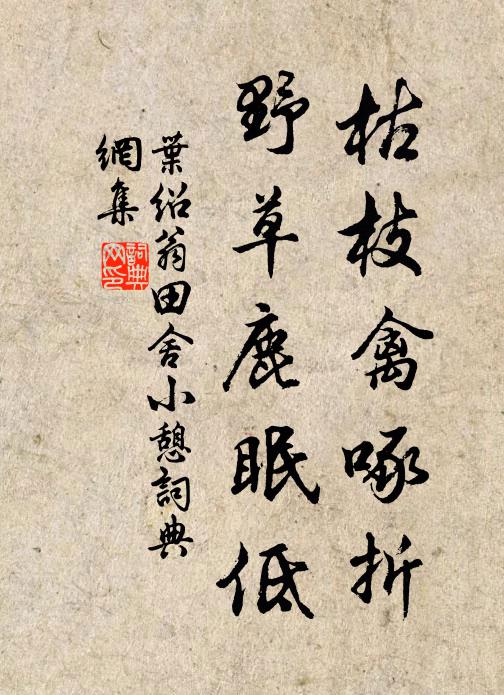 枯枝禽啄折
野草鹿眠低
葉紹翁田舍小憩詞典
網集
詞典網印